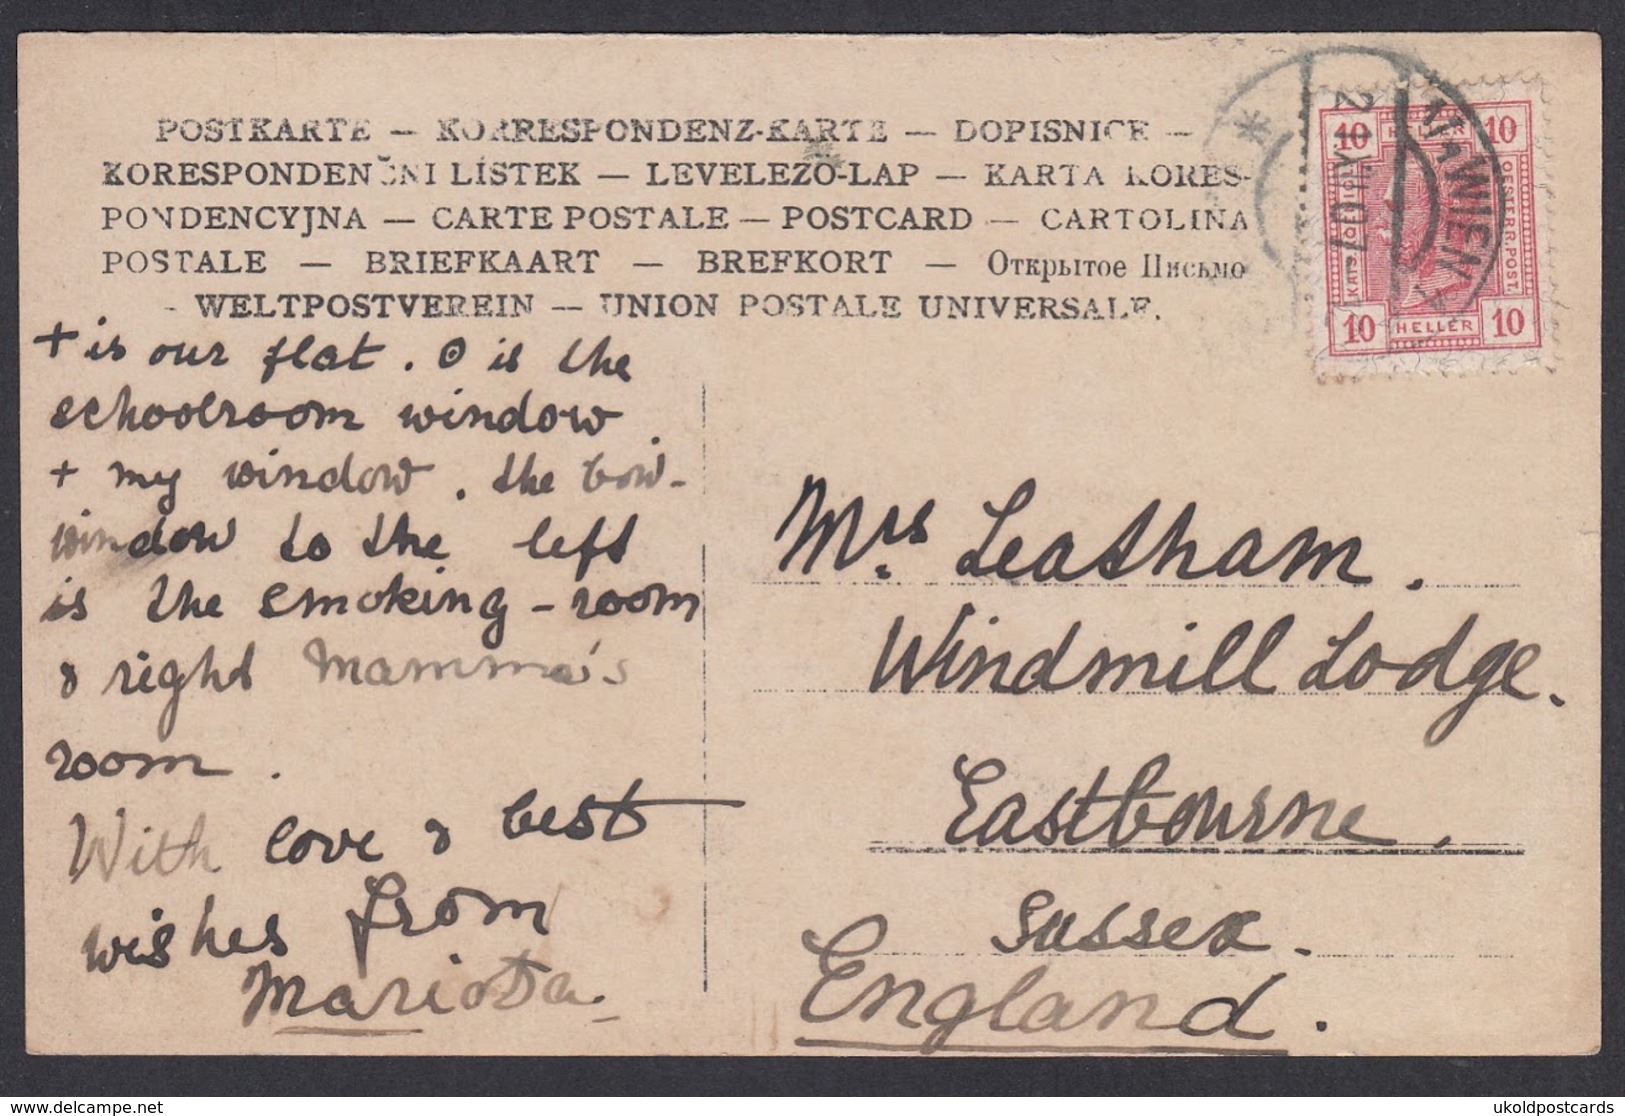 POSTKARTE — KORRESPONDENZ-KARTE — DOPISNICE —
KORESPONDENČNI LÍSTEK — LEVELEZŐ-LAP — KARTA KORES-
PONDENCYJNA — CARTE POSTALE — POSTCARD — CARTOLINA
POSTALE — BRIEFKAART — BREFKORT — Открытое Письмо
- WELTPOSTVEREIN — UNION POSTALE UNIVERSALE.
+ is our flat. ⊙ is the
schoolroom window
+ my window. the bow-
window to the left
is the smoking-room
& right Mamma's
room.
With love & best
wishes from
Mariota.
10 HELLER 10
KAIS. KÖNIGL.
OESTERR. POST.
10 HELLER 10
WIEN
Mrs. Leatham.
Windmill Lodge.
Eastbourne.
Sussex.
England.
ukoldpostcards / delcampe.net